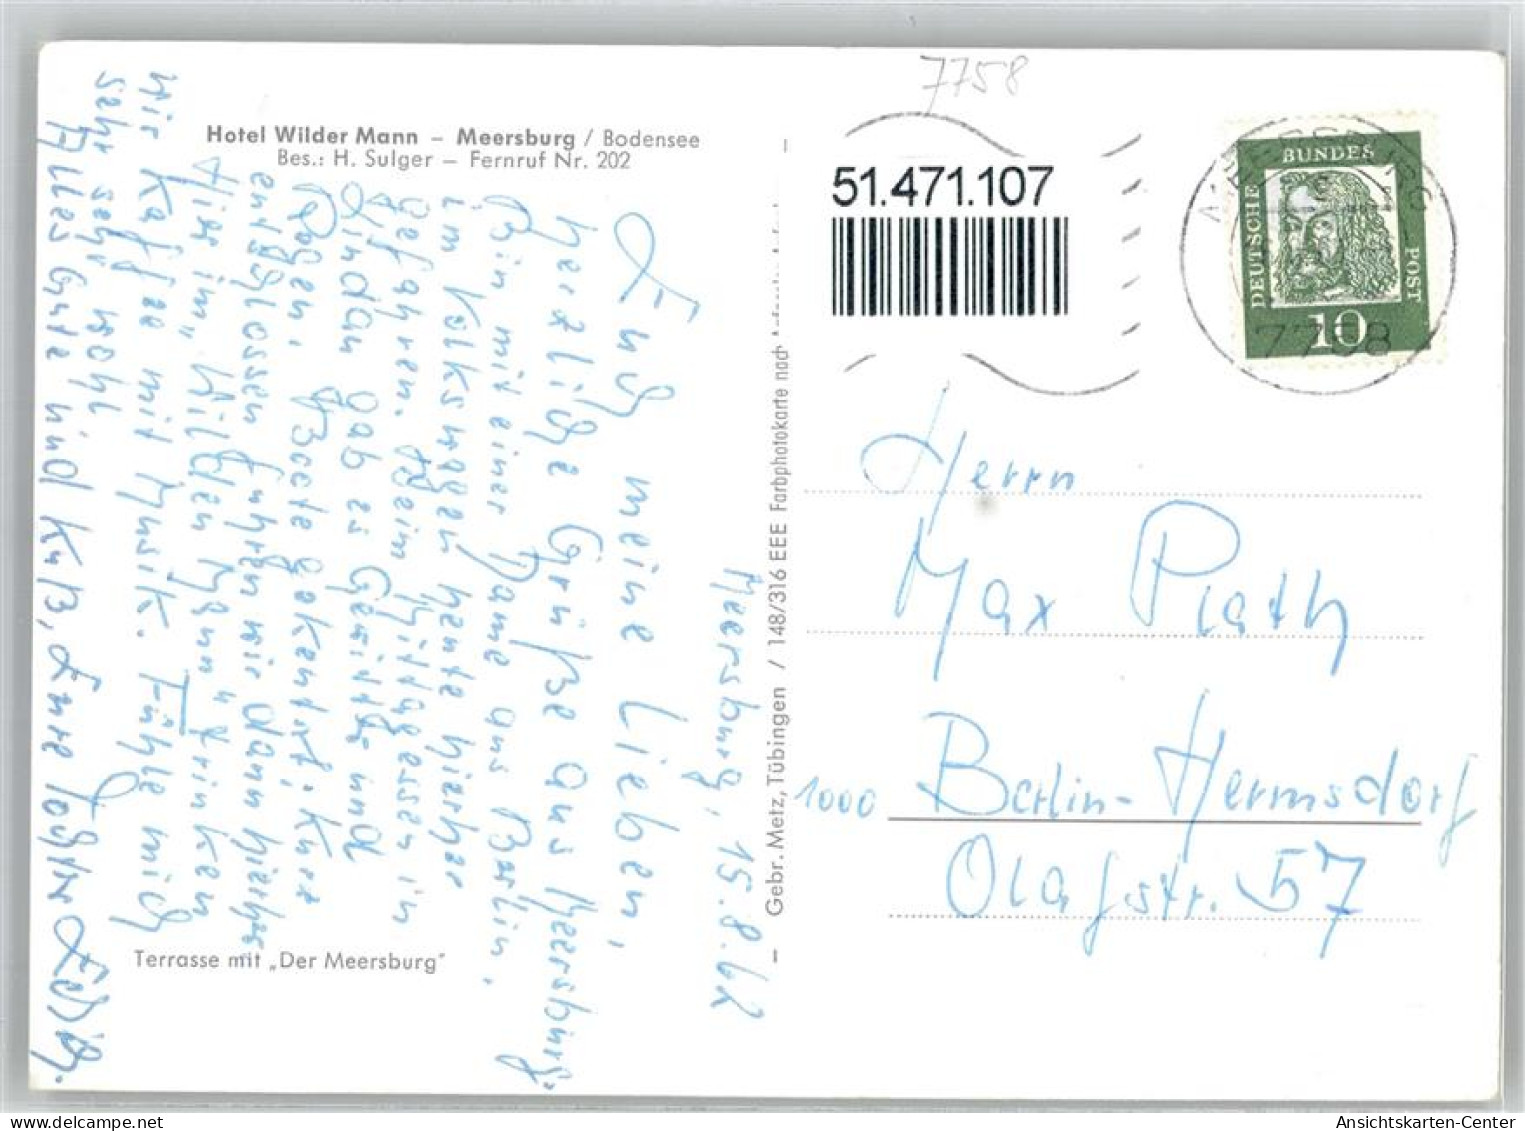 7758
Hotel Wilder Mann – Meersburg / Bodensee
Bes.: H. Sulger – Fernruf Nr. 202
51.471.107
DEUTSCHE BUNDESPOST
10
7758
Meersburg, 15.8.62
Euch meine Lieben,
herzliche Grüße aus Meersburg.
Bin mit einer Dame aus Berlin,
im Volkswagen heute hierher
gefahren. Beim Mittagessen in
Lindau gab es Gewitter und
Regen, Boote gekentert. Kurz
entschlossen fuhren wir dann hierher
Hier im „Wilden Mann" trinken
wir Kaffee mit Musik. Fühle mich
sehr sehr wohl
Alles Gute und Kuß, Eure Tochter
Terrasse mit „Der Meersburg"
Gebr. Metz, Tübingen / 148/316 EEE Farbphotokarte nach
Herrn
Max Plath
1000 Berlin-Hermsdorf
Olafstr. 57
Ansichtskarten-Center
www.delcampe.net